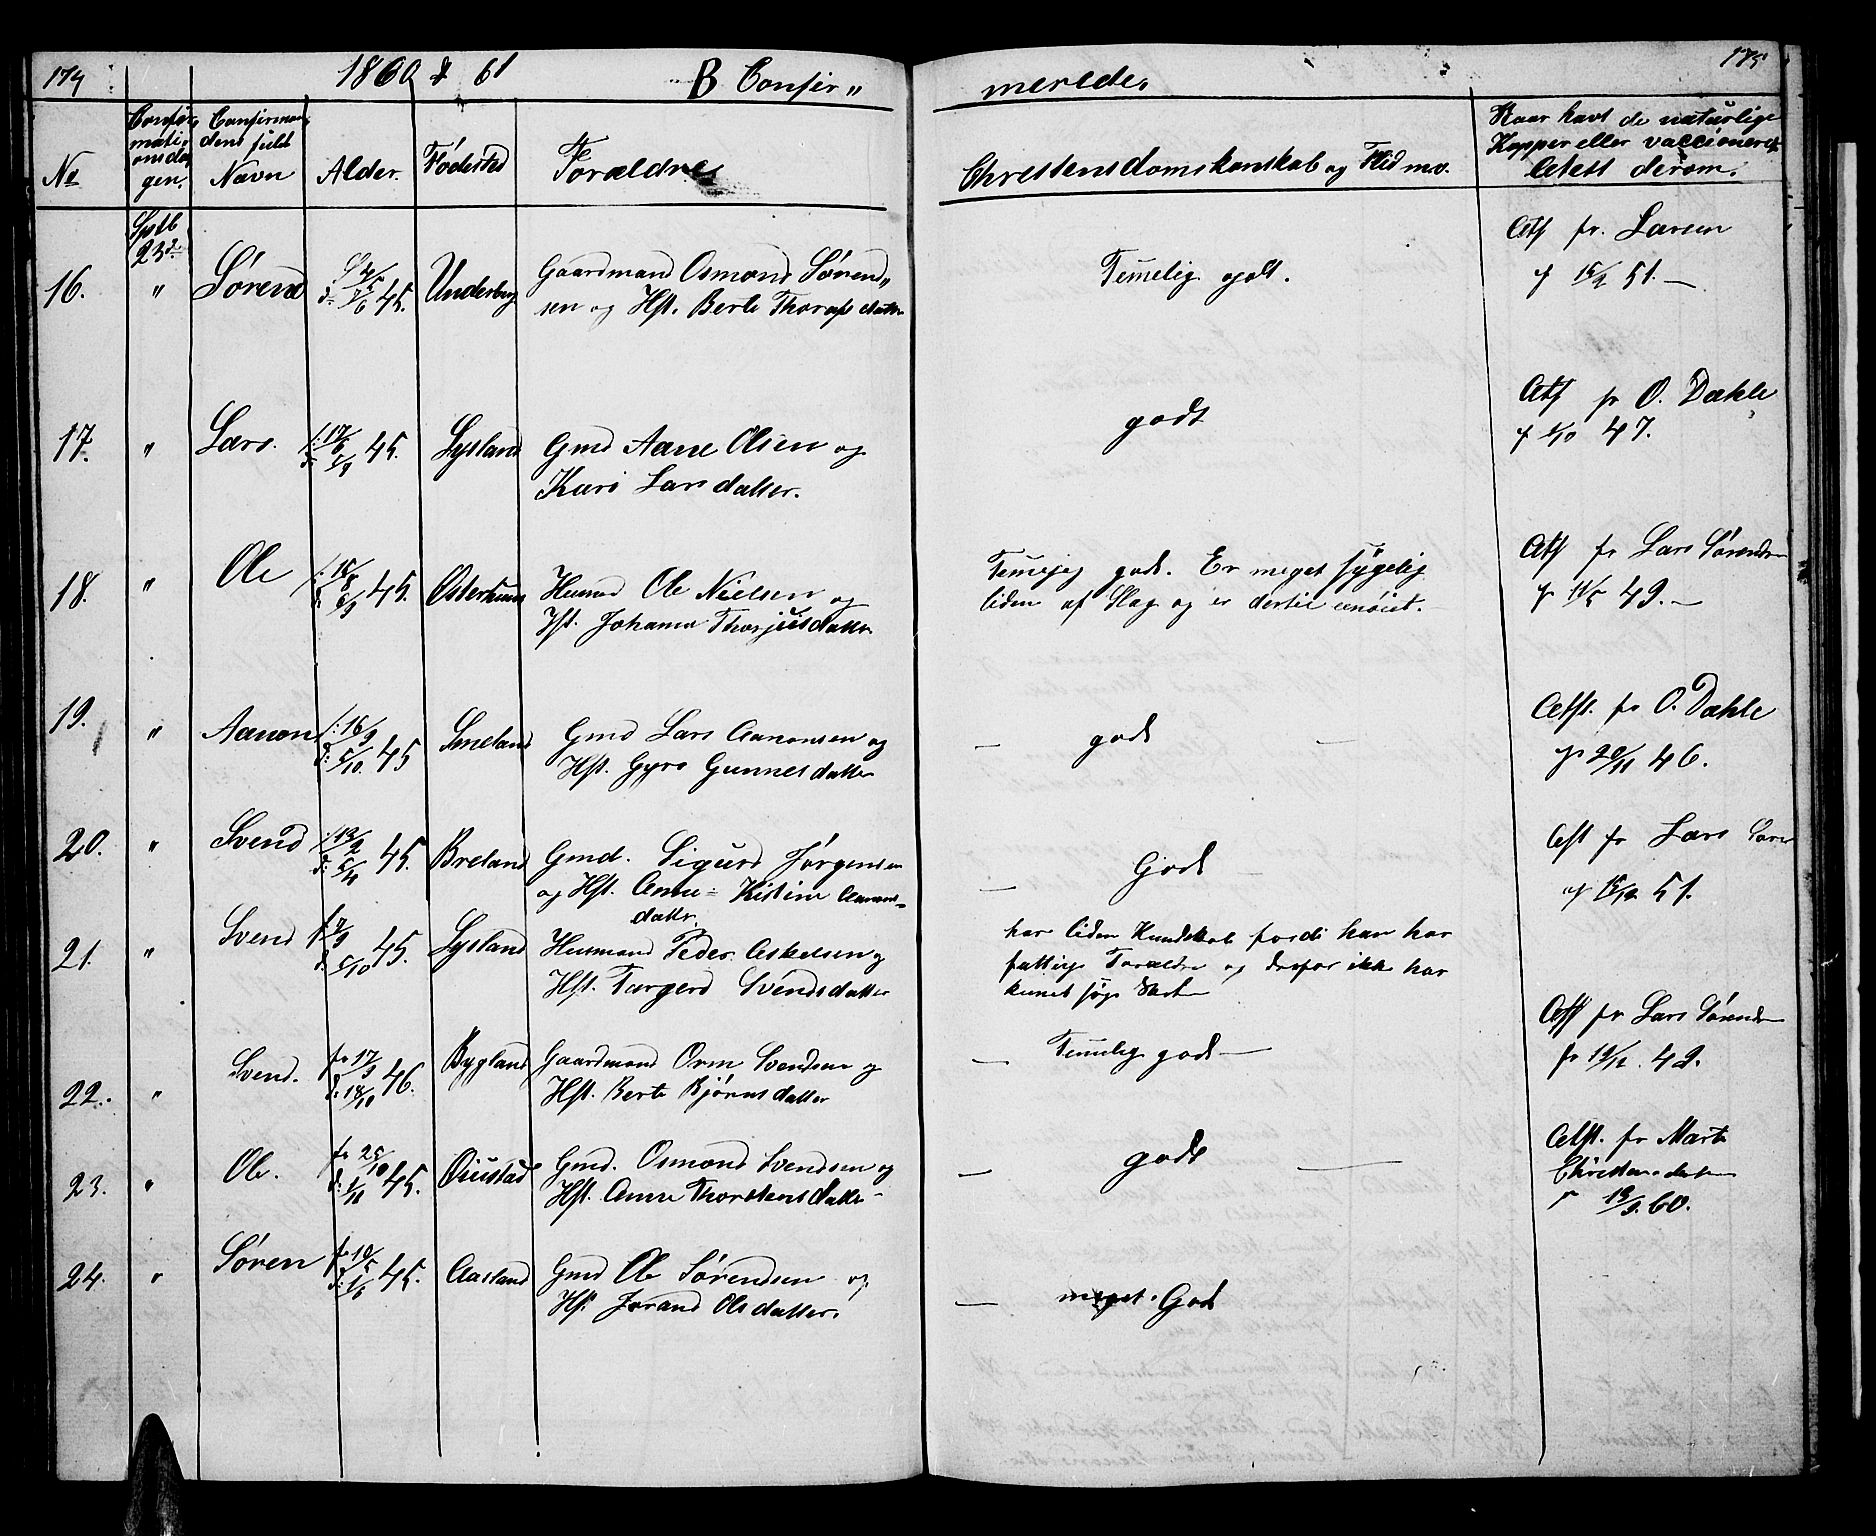 174 1860 & 61 B Confir„ merede. 175
No
Confir„
mati„
onsda
gen.
Confirman„
dens fulde
Navn
Alder.
Fødested
Forældre
Christensdomskunskab og Flid m.v.
Naar havt de naturlige
Kopper eller vaccioneret
Attest derom.
Sptb
23de
16. „ Søren f 2/5 d 7/6 45. Underberg
Gaardmand Osmond Sørend„
sen og Hst. Berte datter
Temelig godt.
Att fr. Larsen
af 15/2 51. —
17. „ Lars. 45. Lysland
Gmd Aane Olsen og
Kari Larsdatter.
godt
Att fr O. Dahle
af 6/10 47.
18. „ Ole 45. Osterhuus
Husmd Ole Nielsen og
Hst. Johanna Thorjusdatter
godt. Er meget sygelig
liden af Slag og er dertil
Att fr Lars Sørends
af 11/5 49. —
19. „ Aanon f: 16/9 d: 5/10 45 Smeland
Gmd Lars Aanonsen og
Hst. Gyro Gunnelsdatter
— godt —
Attst. fr O. Dahle
af 20/11 46.
20. „ Svend 45. Breland
Gmd. Sigurd Jørgensen
og Hst. Anne = Kistine Aanons=
datter.
— Godt
Att fr Lars Søren
af 15/12 51.
21. „ Svend d: 5/10 45. Lysland
Husmand Peder Askelsen og
Hst. Targerd Svendsdatter
har liden Kundskab fordi han har
fattige Forældre og derfor ikke har
kunet søge Skolen
22. „ Svend. fr 17/9 d: 18/10 46. Bygland
Gaardmand Orm Svendsen og
Hst. Berte Bjørnsdatter
— Temelig godt —
Att fr Lars Sørends
fr 19/12. 49.
23. „ Ole. fr 25/10 d: 1/11 45. Øiustad
Gmd. Osmond Svendsen og
Hst. Anne Thorstensdatter
— godt —
Attst. fr Marte
Christensdatter
19/9. 60.
24. „ Søren fr 10/5 d: 1/6 45. Aasland
Gmd Ole Sørendsen og
Hst Jorand Olsdatter.
— meget. Godt